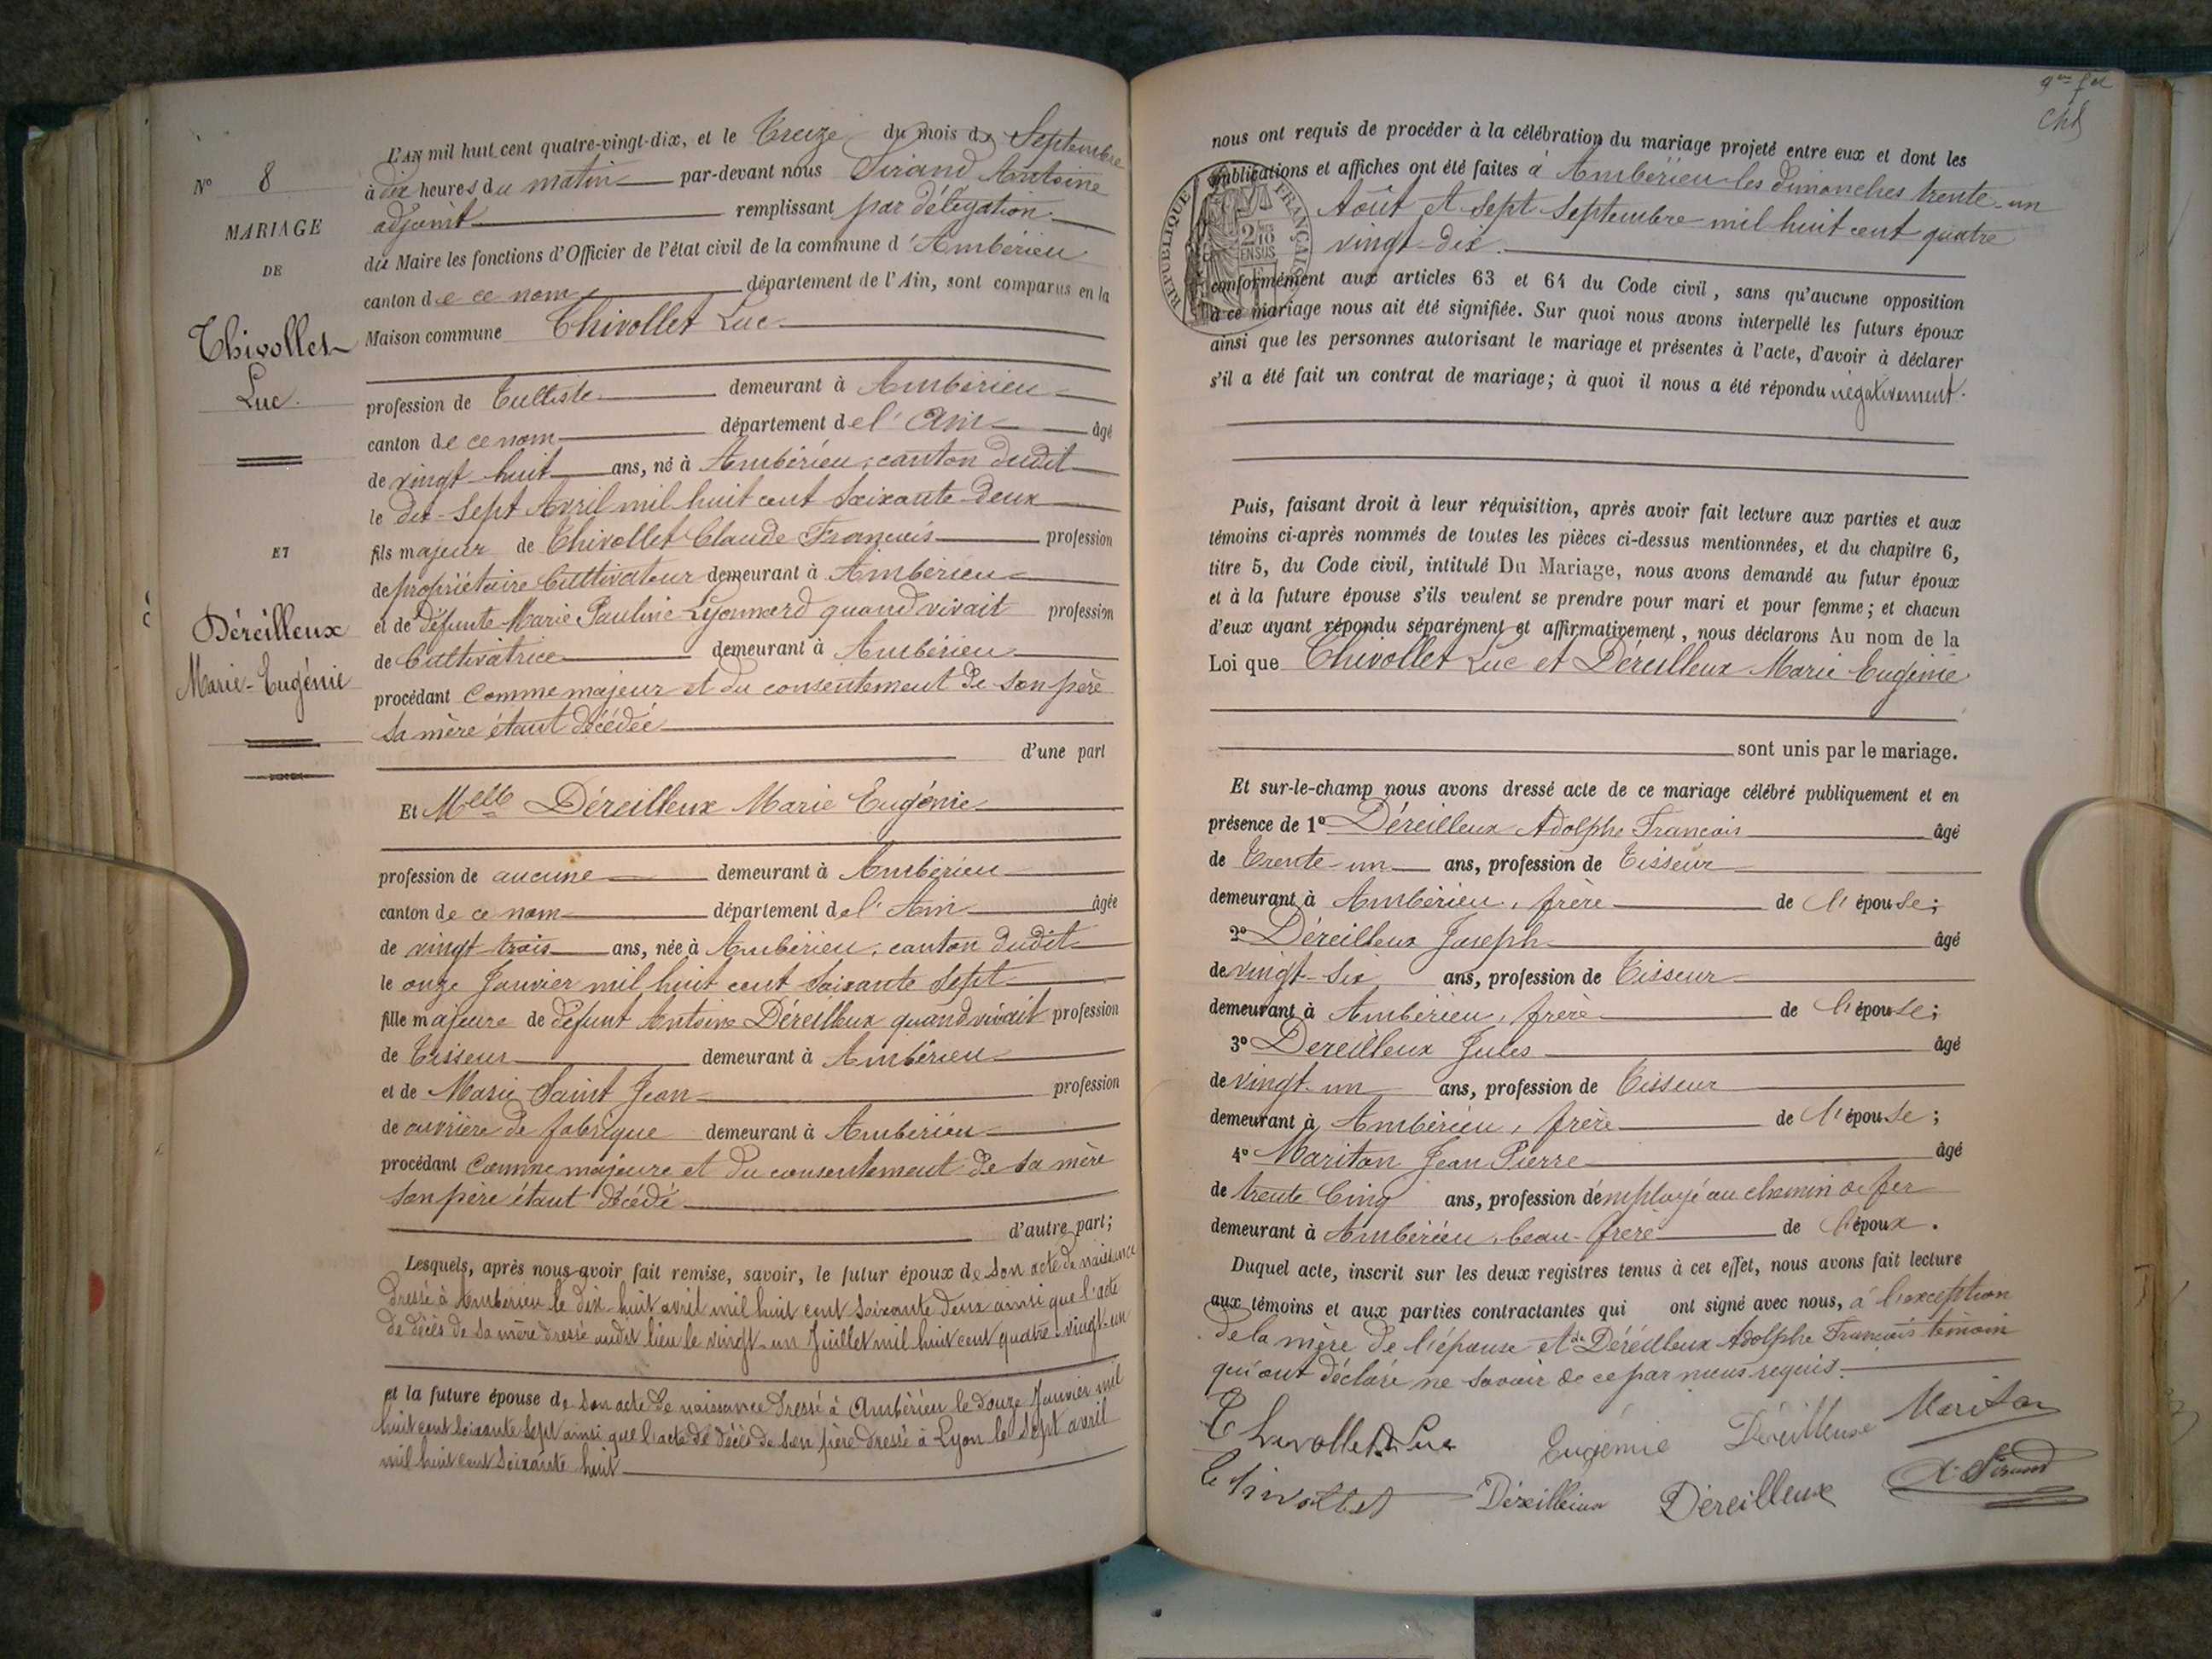 N° 8
MARIAGE
DE
Thivollet
Luc.
ET
Déreilleux
Marie-Eugénie
L'AN mil huit cent quatre-vingt-dix, et le Treize du mois de Septembre
à dix heures du matin par-devant nous Sirand Antoine
adjoint remplissant par délégation
du Maire les fonctions d'Officier de l'état civil de la commune d'Ambérieu
canton de ce nom, département de l'Ain, sont comparus en la
Maison commune Thivollet Luc
profession de Tulliste demeurant à Ambérieu
canton de ce nom département de l'Ain âgé
de vingt-huit ans, né à Ambérieu, canton dudit
le dix-sept Avril mil huit cent soixante-deux
fils majeur de Thivollet Claude François profession
de propriétaire Cultivateur demeurant à Ambérieu
et de défunte Marie Pauline Lyonnard quand vivait profession
de Cultivatrice demeurant à Ambérieu
procédant comme majeur et du consentement de son père
sa mère étant décédée
d'une part
Et Melle Déreilleux Marie Eugénie
profession de aucune demeurant à Ambérieu
canton de ce nom département de l'Ain âgée
de vingt-trois ans, née à Ambérieu, canton dudit
le onze Janvier mil huit cent soixante sept
fille majeure de défunt Antoine Déreilleux quand vivait profession
de Tisseur demeurant à Ambérieu
et de Marie Saint Jean profession
de ouvrière de fabrique demeurant à Ambérieu
procédant comme majeure et du consentement de sa mère
son père étant décédé
d'autre part;
Lesquels, après nous avoir fait remise, savoir, le futur époux de son acte de naissance
dressé à Ambérieu le dix-huit avril mil huit cent soixante deux ainsi que l'acte
de décès de sa mère dressé audit lieu le vingt-un Juillet mil huit cent quatre-vingt-un
et la future épouse de son acte de naissance dressé à Ambérieu le douze Janvier mil
huit cent soixante sept ainsi que l'acte de décès de son père dressé à Lyon le sept avril
mil huit cent soixante huit
nous ont requis de procéder à la célébration du mariage projeté entre eux et dont les
publications et affiches ont été faites à Ambérieu les dimanches trente-un
Août et sept Septembre mil huit cent quatre
vingt-dix.
REPUBLIQUE FRANÇAISE
2/10 EN SUS
conformément aux articles 63 et 64 du Code civil, sans qu'aucune opposition
à ce mariage nous ait été signifiée. Sur quoi nous avons interpellé les futurs époux
ainsi que les personnes autorisant le mariage et présentes à l'acte, d'avoir à déclarer
s'il a été fait un contrat de mariage; à quoi il nous a été répondu négativement.
Puis, faisant droit à leur réquisition, après avoir fait lecture aux parties et aux
témoins ci-après nommés de toutes les pièces ci-dessus mentionnées, et du chapitre 6,
titre 5, du Code civil, intitulé Du Mariage, nous avons demandé au futur époux
et à la future épouse s'ils veulent se prendre pour mari et pour femme; et chacun
d'eux ayant répondu séparément et affirmativement, nous déclarons Au nom de la
Loi que Thivollet Luc et Déreilleux Marie Eugénie
sont unis par le mariage.
Et sur-le-champ nous avons dressé acte de ce mariage célébré publiquement et en
présence de 1° Déreilleux Adolphe François âgé
de Trente-un ans, profession de Tisseur
demeurant à Ambérieu, frère de l'épouse;
2° Déreilleux Joseph âgé
de vingt-six ans, profession de Tisseur
demeurant à Ambérieu, frère de l'épouse;
3° Dereilleux Jules âgé
de vingt-un ans, profession de Tisseur
demeurant à Ambérieu, frère de l'épouse;
4° Mariton Jean Pierre âgé
de trente cinq ans, profession d'employé au chemin de fer
demeurant à Ambérieu, beau-frère de l'époux.
Duquel acte, inscrit sur les deux registres tenus à cet effet, nous avons fait lecture
aux témoins et aux parties contractantes qui ont signé avec nous, à l'exception
de la mère de l'épouse et de Déreilleux Adolphe François témoin
qui ont déclaré ne savoir de ce par nous requis.
Thivollet Luc Eugénie Déreilleux Mariton
Thivollet Déreilleux Déreilleux A. Sirand